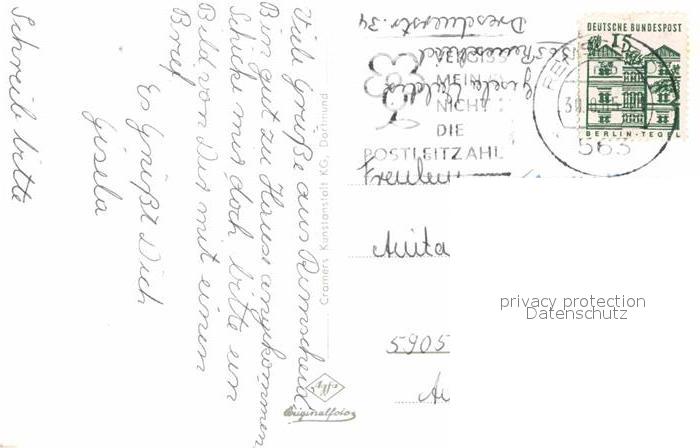 Viele Grüße aus Remscheid
Bin gut zu Hause angekommen
Schicke mir doch bitte ein
Bild von Dir mit einen
Brief
Es Grüßt Dich
Gisela
Schreib bitte
Cramers Kunstanstalt KG, Dortmund
Agfa
Originalfoto
Gisela
563 Remscheid
Drescherstr. 34
VERGISS
MEIN
NICHT
DIE
POSTLEITZAHL
563
DEUTSCHE BUNDESPOST
15
BERLIN-TEGEL
Freulein
Anita
5905
privacy protection
Datenschutz